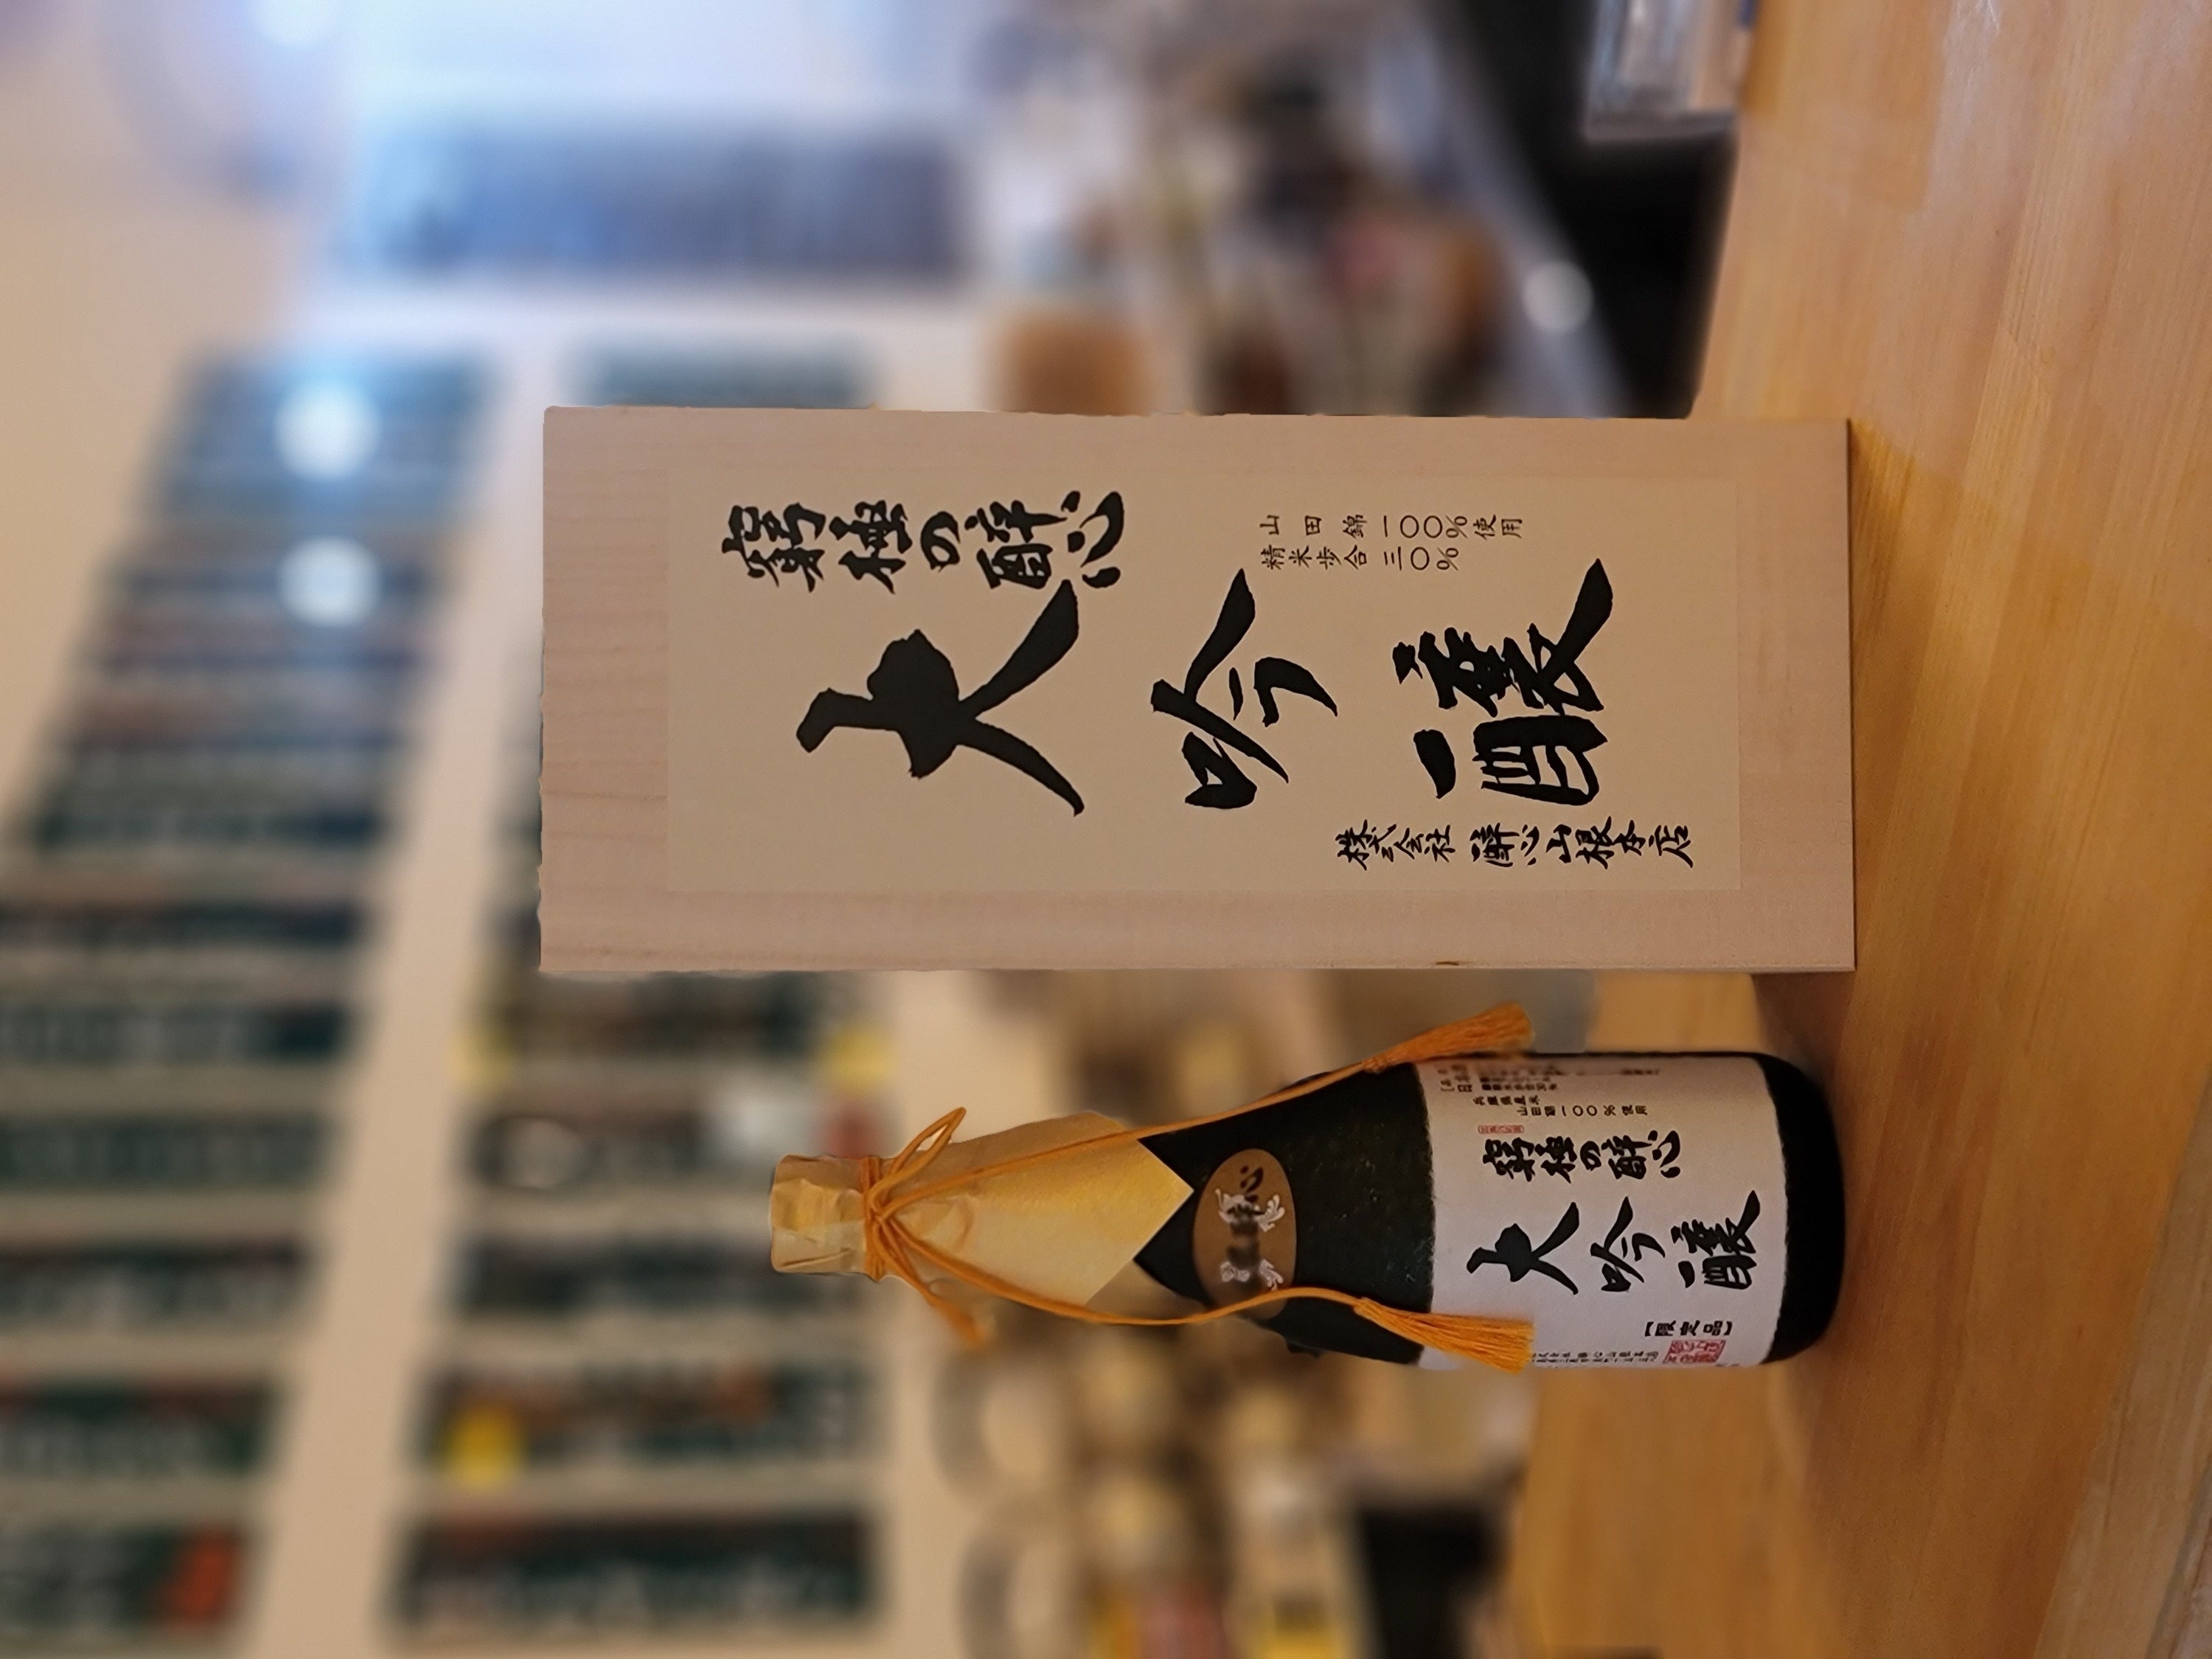 窮極の醉心
大吟醸
山田錦一〇〇％使用
精米歩合三〇％
株式会社 醉心山根本店
兵庫県産米
山田錦一〇〇％使用
窮極の醉心
大吟醸
【限定品】